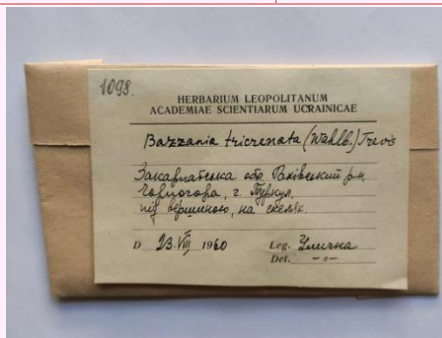 1098.
HERBARIUM LEOPOLITANUM
ACADEMIAE SCIENTIARUM UCRAINICAE
Bazzania tricrenata (Wahlb.) Trevis
Закарпатська обл. Рахівський р-н,
Чорногора, г. Туркул,
під вершиною, на скелях.
D 23.VIII 1960 Leg. Улична
Det. -"-